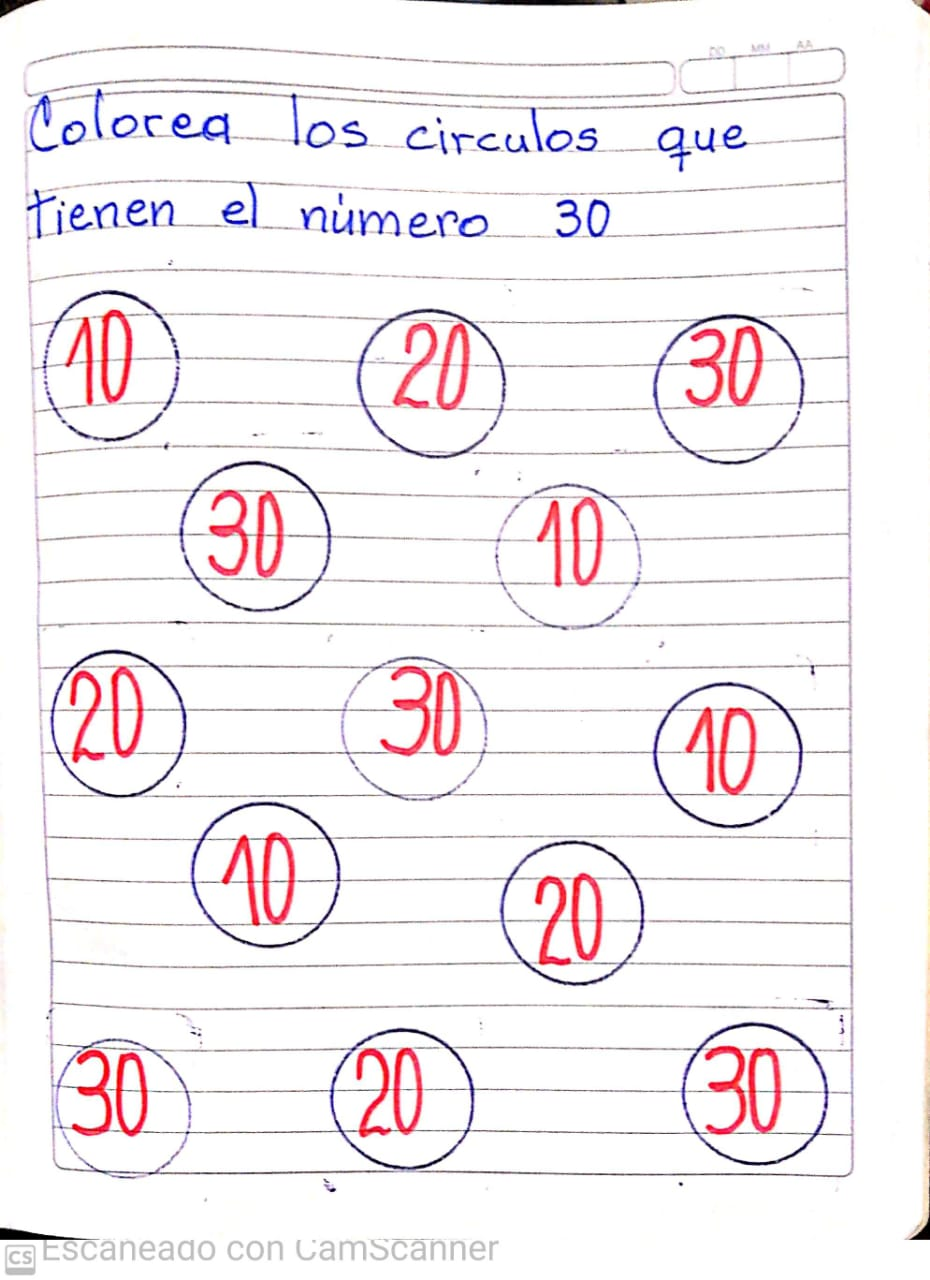 DD MM AA
Colorea los circulos que
tienen el número 30
10 20 30
30 10
20 30 10
10 20
30 20 30
CS Escaneado con CamScanner